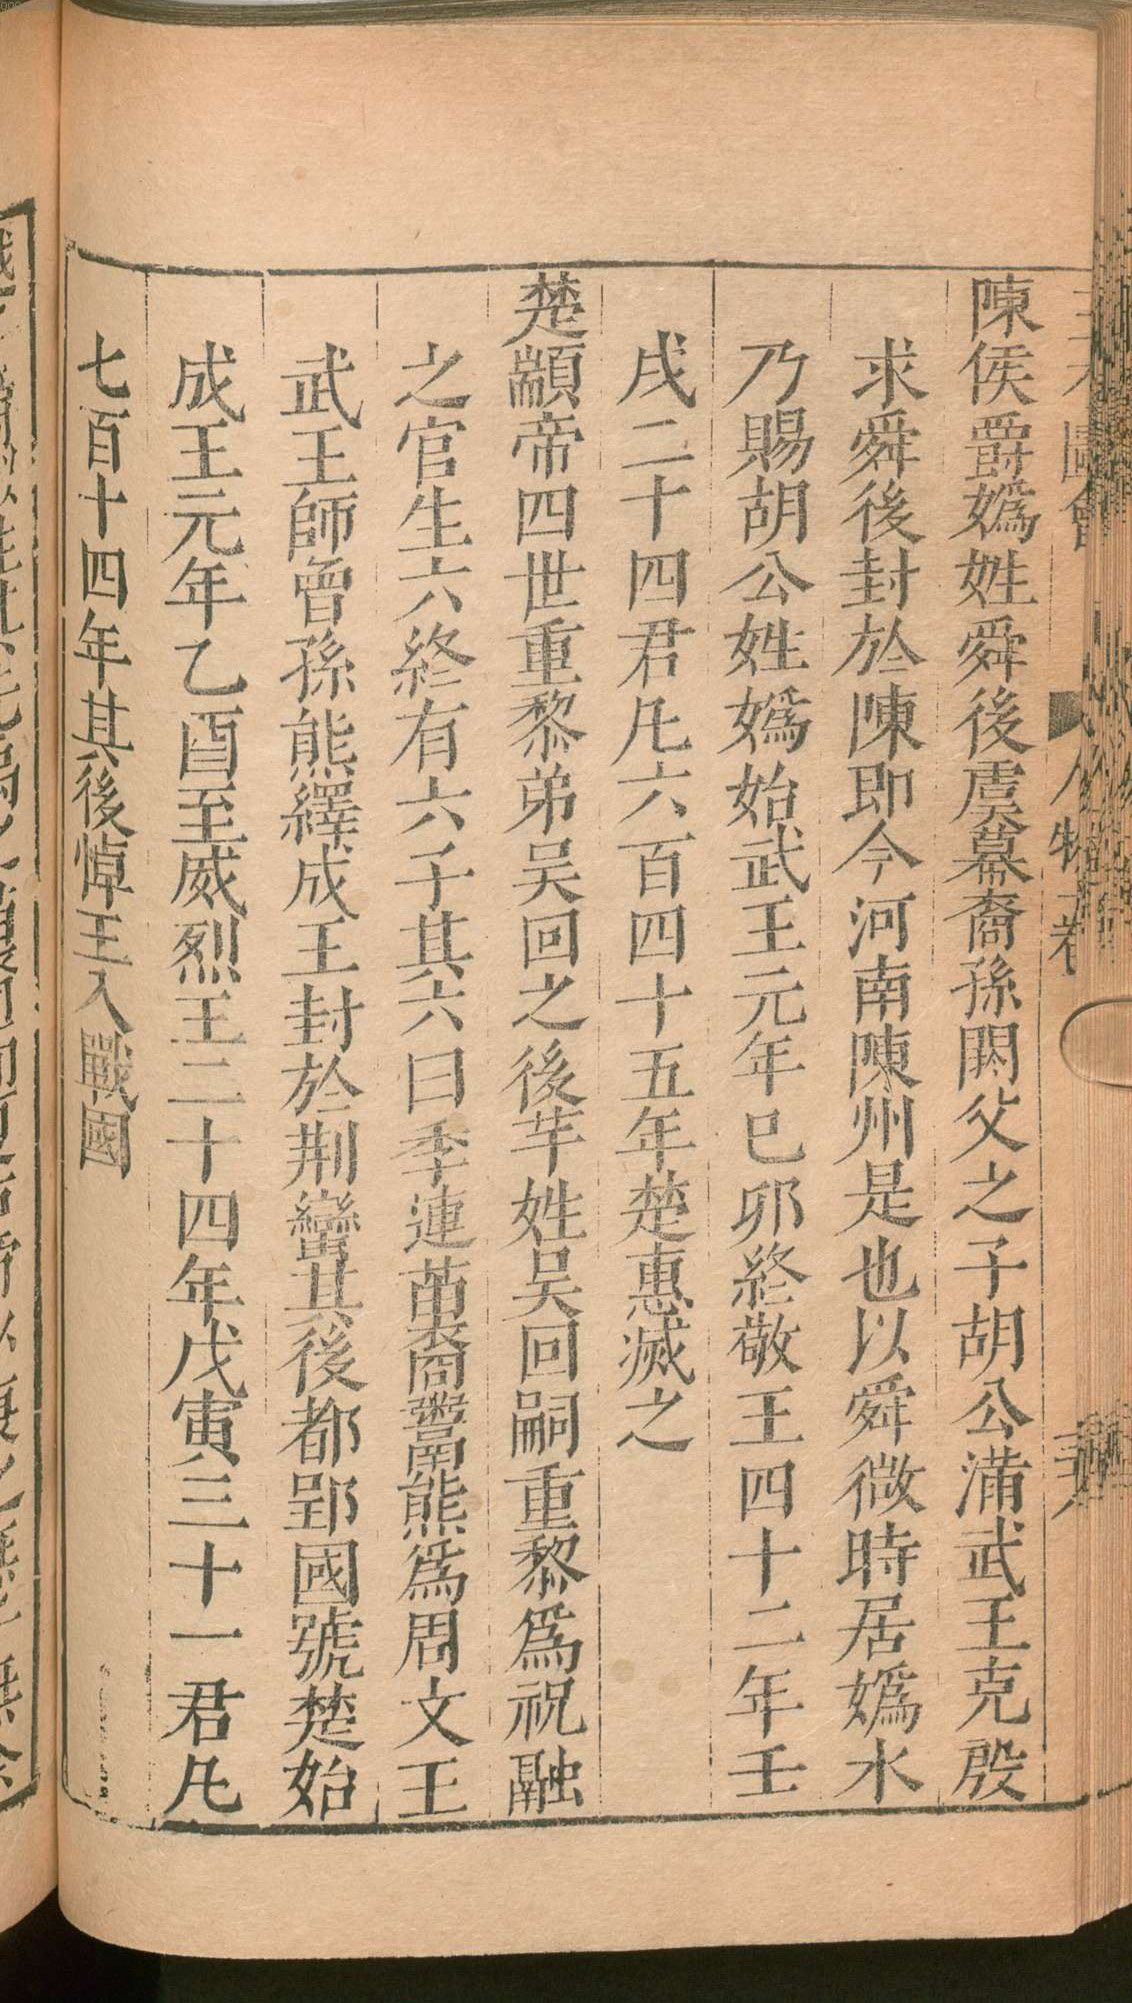 陳侯爵媯姓舜後虞幕裔孫閼父之子胡公滿武王克殷
求舜後封於陳即今河南陳州是也以舜微時居媯水
乃賜胡公姓媯始武王元年巳卯終敬王四十二年壬
戌二十四君凡六百四十五年楚惠滅之
楚顓帝四世重黎弟吴回之後芊姓吴回嗣重黎爲祝融
之官生六終有六子其六曰季連苗裔鬻熊爲周文王
武王師曾孫熊繹成王封於荆蠻其後都郢國號楚始
成王元年乙酉至威烈王二十四年戊寅三十一君凡
七百十四年其後悼王入戰國